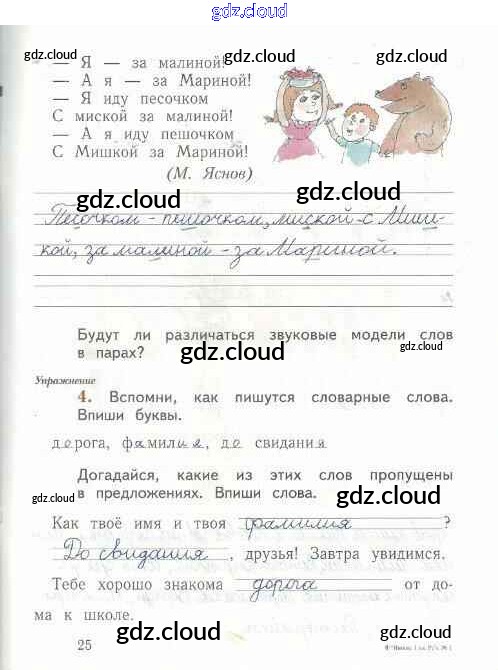 gdz.cloud
gdz.cloud gdz.cloud
— Я — за малиной!
— А я — за Мариной!
— Я иду песочком
С миской за малиной!
— А я иду пешочком
С Мишкой за Мариной!
(М. Яснов)
gdz.cloud
gdz.cloud
gdz.cloud
gdz.cloud
Песочком - пешочком, миской - с Миш-
кой, за малиной - за Мариной.
Будут ли различаться звуковые модели слов
в парах?
gdz.cloud
gdz.cloud
Упражнение
4. Вспомни, как пишутся словарные слова.
Впиши буквы.
дорога, фамилия, до свидания
Догадайся, какие из этих слов пропущены
в предложениях. Впиши слова.
gdz.cloud
gdz.cloud
Как твоё имя и твоя фамилия ?
До свидания, друзья! Завтра увидимся.
Тебе хорошо знакома дорога от до-
ма к школе.
gdz.cloud
gdz.cloud
25